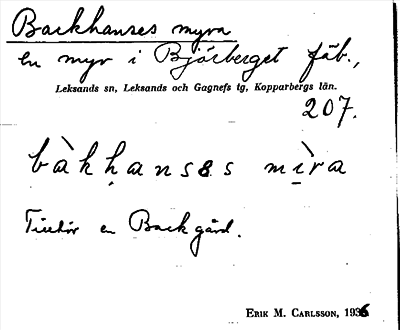 Backhanses myra
en myr i Björberget fäb.,
Leksands sn, Leksands och Gagnefs tg, Kopparbergs län.
207.
bàkḥansɛs mi̠̇ra
Tillhör en Backgård.
ERIK M. CARLSSON, 1936